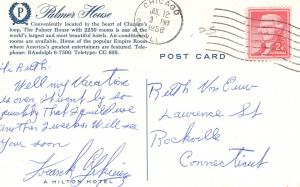 Palmer House
Conveniently located in the heart of Chicago's
loop, The Palmer House with 2250 rooms is one of the
world's largest and most beautiful hotels. Air-conditioned
rooms are available. Home of the famous Empire Room
where America's greatest entertainers are featured. Tele-
phone: RAndolph 6-7500. Teletype: CG 696.
CHICAGO
JUL 12
3 PM
1956
ILL
2¢
POST CARD
Hi Ruth:
Well my Vacation
is over it went by so
quickly that I could use
another 2 weeks. Will see
you soon
Frank
A HILTON HOTEL
Ruth Von Euw
Lawrence St
Rockville
Connecticut